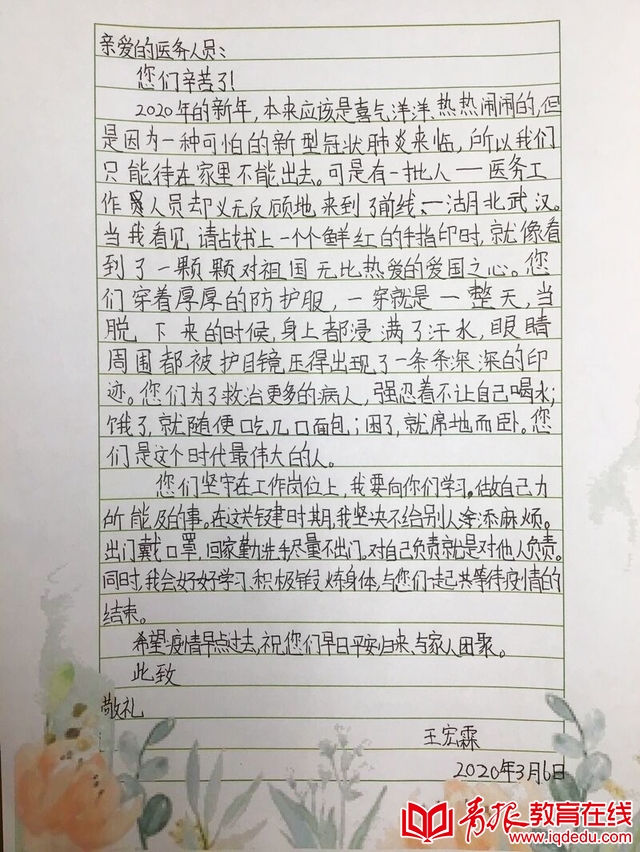 亲爱的医务人员：
您们辛苦了！
2020年的新年，本来应该是喜气洋洋、热热闹闹的，但
是因为一种可怕的新型冠状肺炎来临，所以我们
只能待在家里不能出去。可是有一批人——医务工
作人员却义无反顾地来到了前线、——湖北武汉。
当我看见请战书上一个个鲜红的手指印时，就像看
到了一颗颗对祖国无比热爱的爱国之心。您
们穿着厚厚的防护服，一穿就是一整天，当
脱下来的时候，身上都浸满了汗水，眼睛
周围都被护目镜压得出现了一条条深深的印
迹。您们为了救治更多的病人，强忍着不让自己喝水；
饿了，就随便吃几口面包；困了，就席地而卧。您
们是这个时代最伟大的人。
您们坚守在工作岗位上，我要向你们学习。做自己力
所能及的事。在这关键时期，我坚决不给别人添麻烦。
出门戴口罩，回家勤洗手尽量不出门，对自己负责就是对他人负责。
同时，我会好好学习，积极锻炼身体，与您们一起共等待疫情的
结束。
希望疫情早点过去，祝您们早日平安归来、与家人团聚。
此致
敬礼
王宏霖
2020年3月6日
青报教育在线
www.iqdedu.com